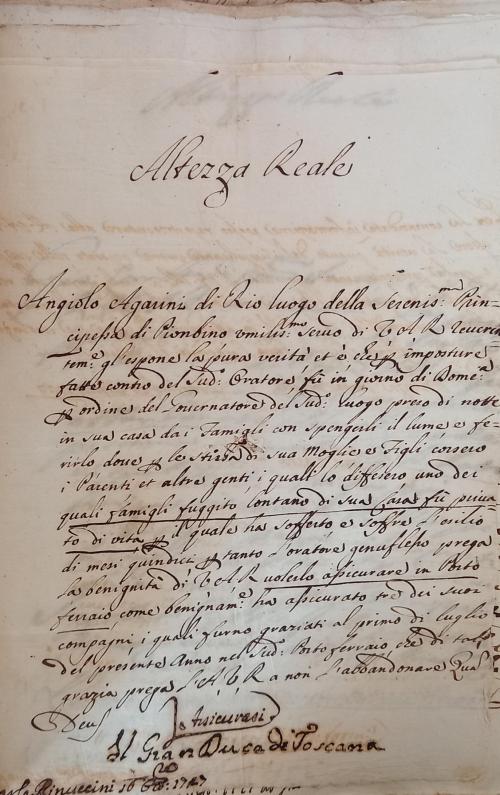 Altezza Reale
Angiolo Agarini di Rio luogo della Sereniss.ma Prin-
cipessa di Piombino umiliss.mo servo di V A R reveren-
tem.e gl'espone la pura verità et è che p imposture
fatte contro del Sud.o Oratore fù in giorno di Dome.ca
p ordine del Governatore del Sud.o luogo preso di notte
in sua casa dai Famigli con spengerli il lume e fe-
rirlo dove p le strida di sua Moglie e Figli corsero
i Parenti et altre genti i quali lo difesero uno dei
quali famigli fuggito lontano di sua Casa fù priva-
to di vita p il quale ha sofferto e soffre l'esilio
di mesi quindici p tanto l'oratore genuflesso prega
la benignità di V A R volerlo assicurare in Porto
ferraio come benignam.e ha assicurato tre dei suoi
compagni i quali furno graziati al primo di luglio
del presente Anno nel Sud.o Porto ferraio che di tal
grazia prega l'A V R a non l'abbandonare Quas
Deus
Assicurasi
Il Gran Duca di Toscana
Rinuccini 16